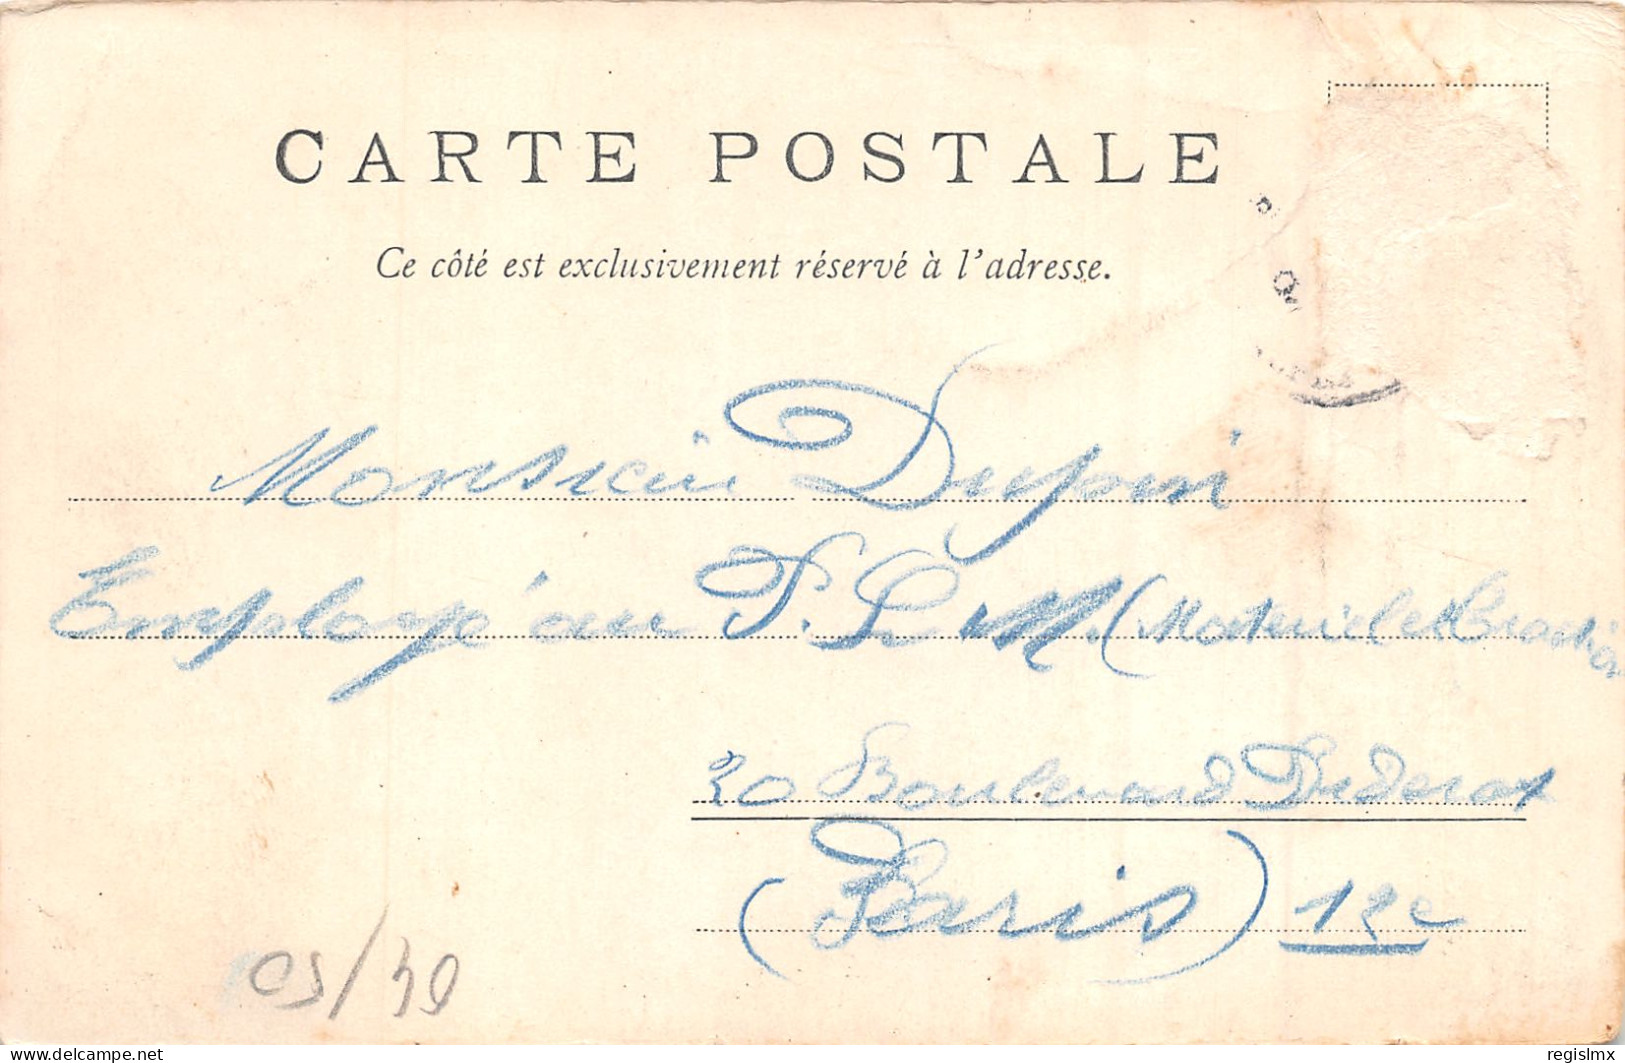 CARTE POSTALE
Ce côté est exclusivement réservé à l'adresse.
Monsieur
Employé au P. L. M. (Materiel et Traction
20 Boulevard Diderot
(Paris) 12e
delcampe.net
regislmx